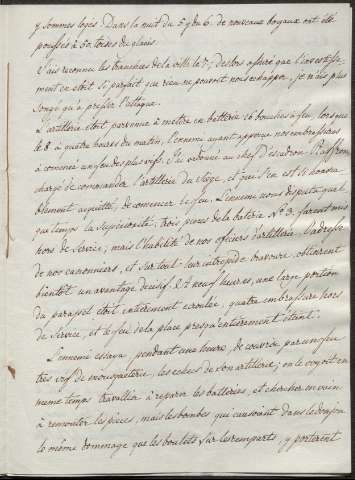 y sommes logés. Dans la nuit du 5 au 6. de nouveaux boyaux ont été
poussés à 60 toises du glacis.
J'ais reconnu les tranchées de la ville le 7; dès lors assuré que l'investisse-
ment en étoit si parfait que rien ne pouvoit nous echapper, je n'ais plus
songé qu'a presser l'attaque.
L'artillerie étoit parvenue à mettre en batterie 16 bouches à feu, lorsque
le 8. à quatre heures du matin, l'ennemi ayant apperçu nos embrasures
à comencé un feu des plus vifs. J'ai ordonné au chef d'escadron
chargé de commander l'artillerie du siège, et qui s'en est si honora-
blement acquitté, de comencer le feu. L'ennemi nous disputa quel-
que temps la superiorité, trois pieces de la baterie No. 3. furent mises
hors de service; mais l'habileté de nos oficiers d'artillerie, l'adresse
de nos canonniers, et sur tout leur intrepide bravoure, obtinrent
bientôt un avantage decisif. à neuf heures, une large portion
du parapet étoit entièrement écroulée, quatre embrasures hors
de service, et le feu de la place presqu'entierement éteint.
L'ennemi essaya pendant une heure, de couvrir par un feu
très vif de mousqueterie, les echecs de son artillerie; on le voyoit en
meme temps travailler à reparer les batteries, et chercher en vain
à remonter les pieces, mais les bombes qui causoient dans le donjon
le même dommage que les boulets sur les remparts, y portèrent